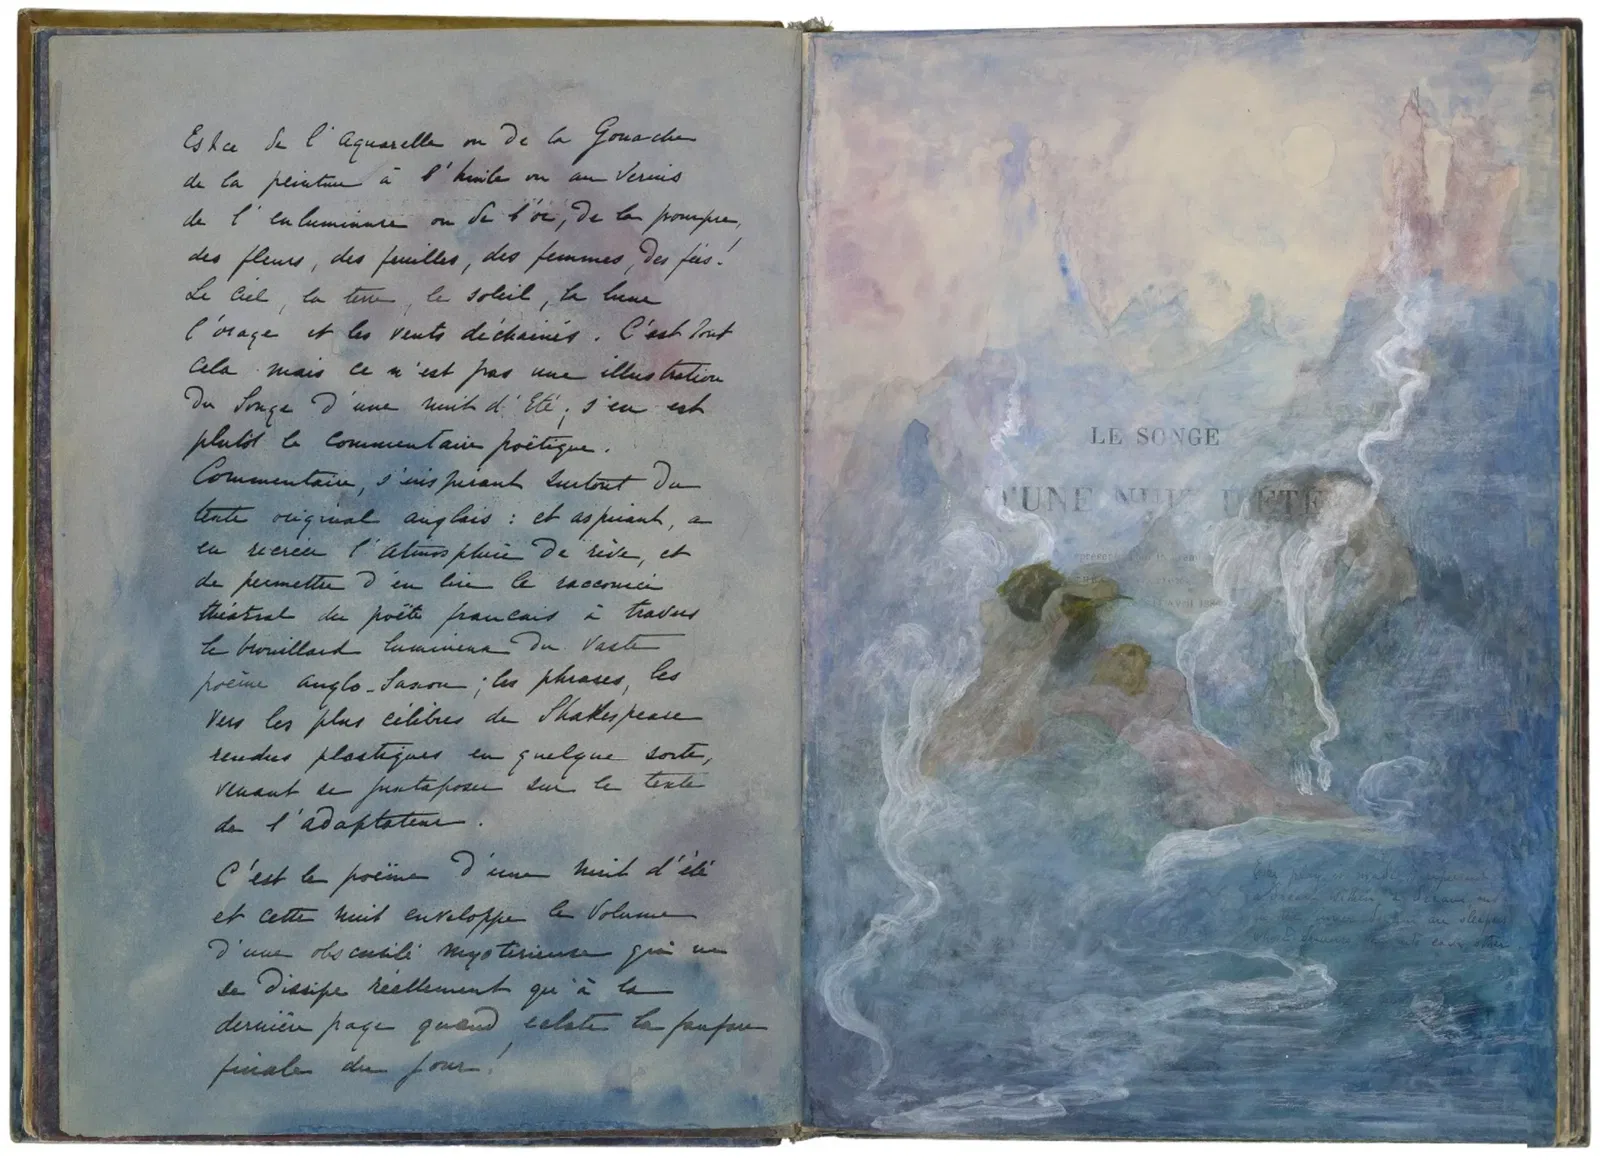 Est ce de l'Aquarelle ou de la Gouache
de la peinture à l'huile ou au Vernis
de l'enluminure ou de l'or, de la pourpre,
des fleurs, des feuilles, des femmes, des fées!
Le Ciel, la terre, le soleil, la lune
l'orage et les vents déchainés. C'est tout
cela mais ce n'est pas une illustration
du Songe d'une nuit d'Eté; s'en est
plutôt le commentaire poëtique.
Commentaire, s'inspirant surtout du
texte original anglais : et aspirant, a
en recréer l'atmosphère de rêve, et
de permettre d'en lire le raccourci
théâtral du poëte français à travers
le brouillard lumineux du vaste
poëme anglo-Saxon; les phrases, les
vers les plus célèbres de Shakespeare
rendus plastiques en quelque sorte,
venant se juxtaposer sur le texte
de l'adaptateur.
C'est le poëme d'une nuit d'été
et cette nuit enveloppe le Volume
d'une obscurité mystérieuse qui ne
se dissipe réellement qu'à la
dernière page quand éclate la fanfare
finale du jour!
LE SONGE
D'UNE NUIT D'ETE